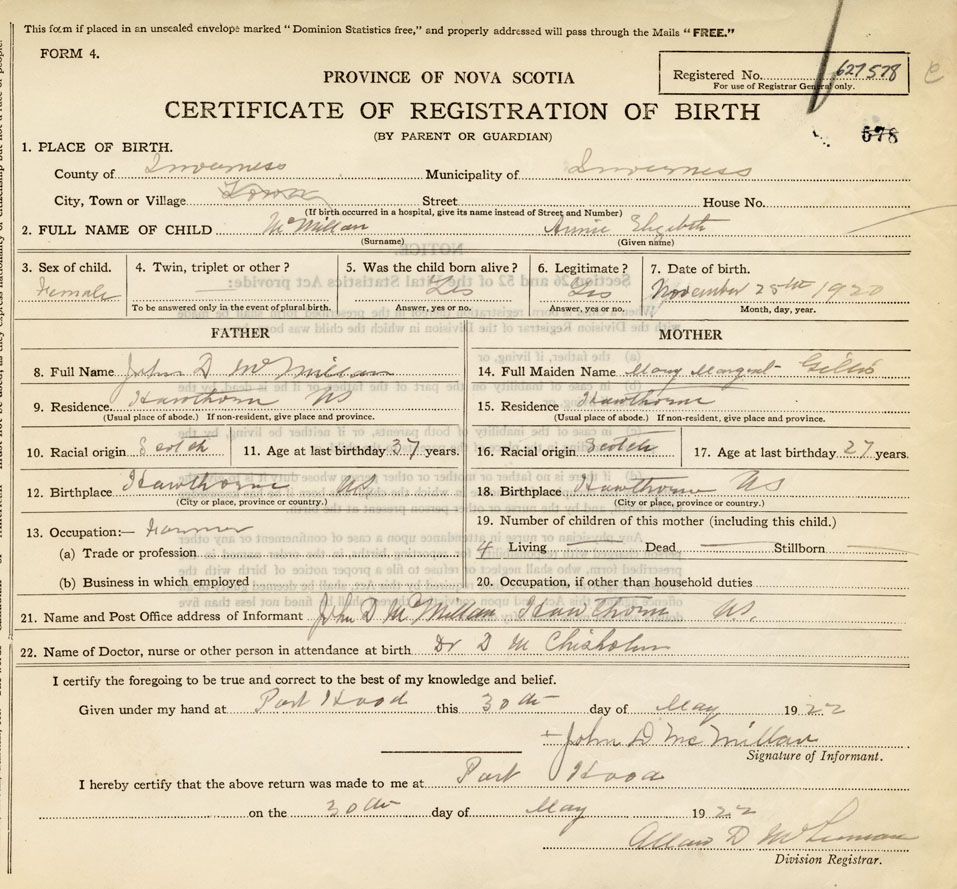 This form if placed in an unsealed envelope marked "Dominion Statistics free," and properly addressed will pass through the Mails "FREE."
FORM 4.
PROVINCE OF NOVA SCOTIA
Registered No. 627578
For use of Registrar General only.
CERTIFICATE OF REGISTRATION OF BIRTH
(BY PARENT OR GUARDIAN)
678
1. PLACE OF BIRTH.
County of Inverness Municipality of Inverness
City, Town or Village Street House No.
(If birth occurred in a hospital, give its name instead of Street and Number)
2. FULL NAME OF CHILD McMillan Annie Elizabeth
(Surname) (Given name)
3. Sex of child. 4. Twin, triplet or other? 5. Was the child born alive? 6. Legitimate? 7. Date of birth.
Female Yes Yes November 28th 1920
To be answered only in the event of plural birth. Answer, yes or no. Answer, yes or no. Month, day, year.
FATHER MOTHER
8. Full Name John D McMillan 14. Full Maiden Name Mary Margret Gillis
9. Residence. Hawthorn NS 15. Residence Hawthorne
(Usual place of abode.) If non-resident, give place and province. (Usual place of abode.) If non-resident, give place and province.
10. Racial origin Scotch 11. Age at last birthday 37 years. 16. Racial origin Scotch 17. Age at last birthday 27 years.
12. Birthplace Hawthorne NS 18. Birthplace Hawthorne NS
(City or place, province or country.) (City or place, province or country.)
13. Occupation:— Farmer 19. Number of children of this mother (including this child.)
(a) Trade or profession 4 Living Dead Stillborn
(b) Business in which employed 20. Occupation, if other than household duties
21. Name and Post Office address of Informant John D McMillan Hawthorn NS.
22. Name of Doctor, nurse or other person in attendance at birth Dr D M Chisholm
I certify the foregoing to be true and correct to the best of my knowledge and belief.
Given under my hand at Port Hood this 30th day of May 1922
John D McMillan
Signature of Informant.
I hereby certify that the above return was made to me at Port Hood
on the 30th day of May 1922
Allan D
Division Registrar.